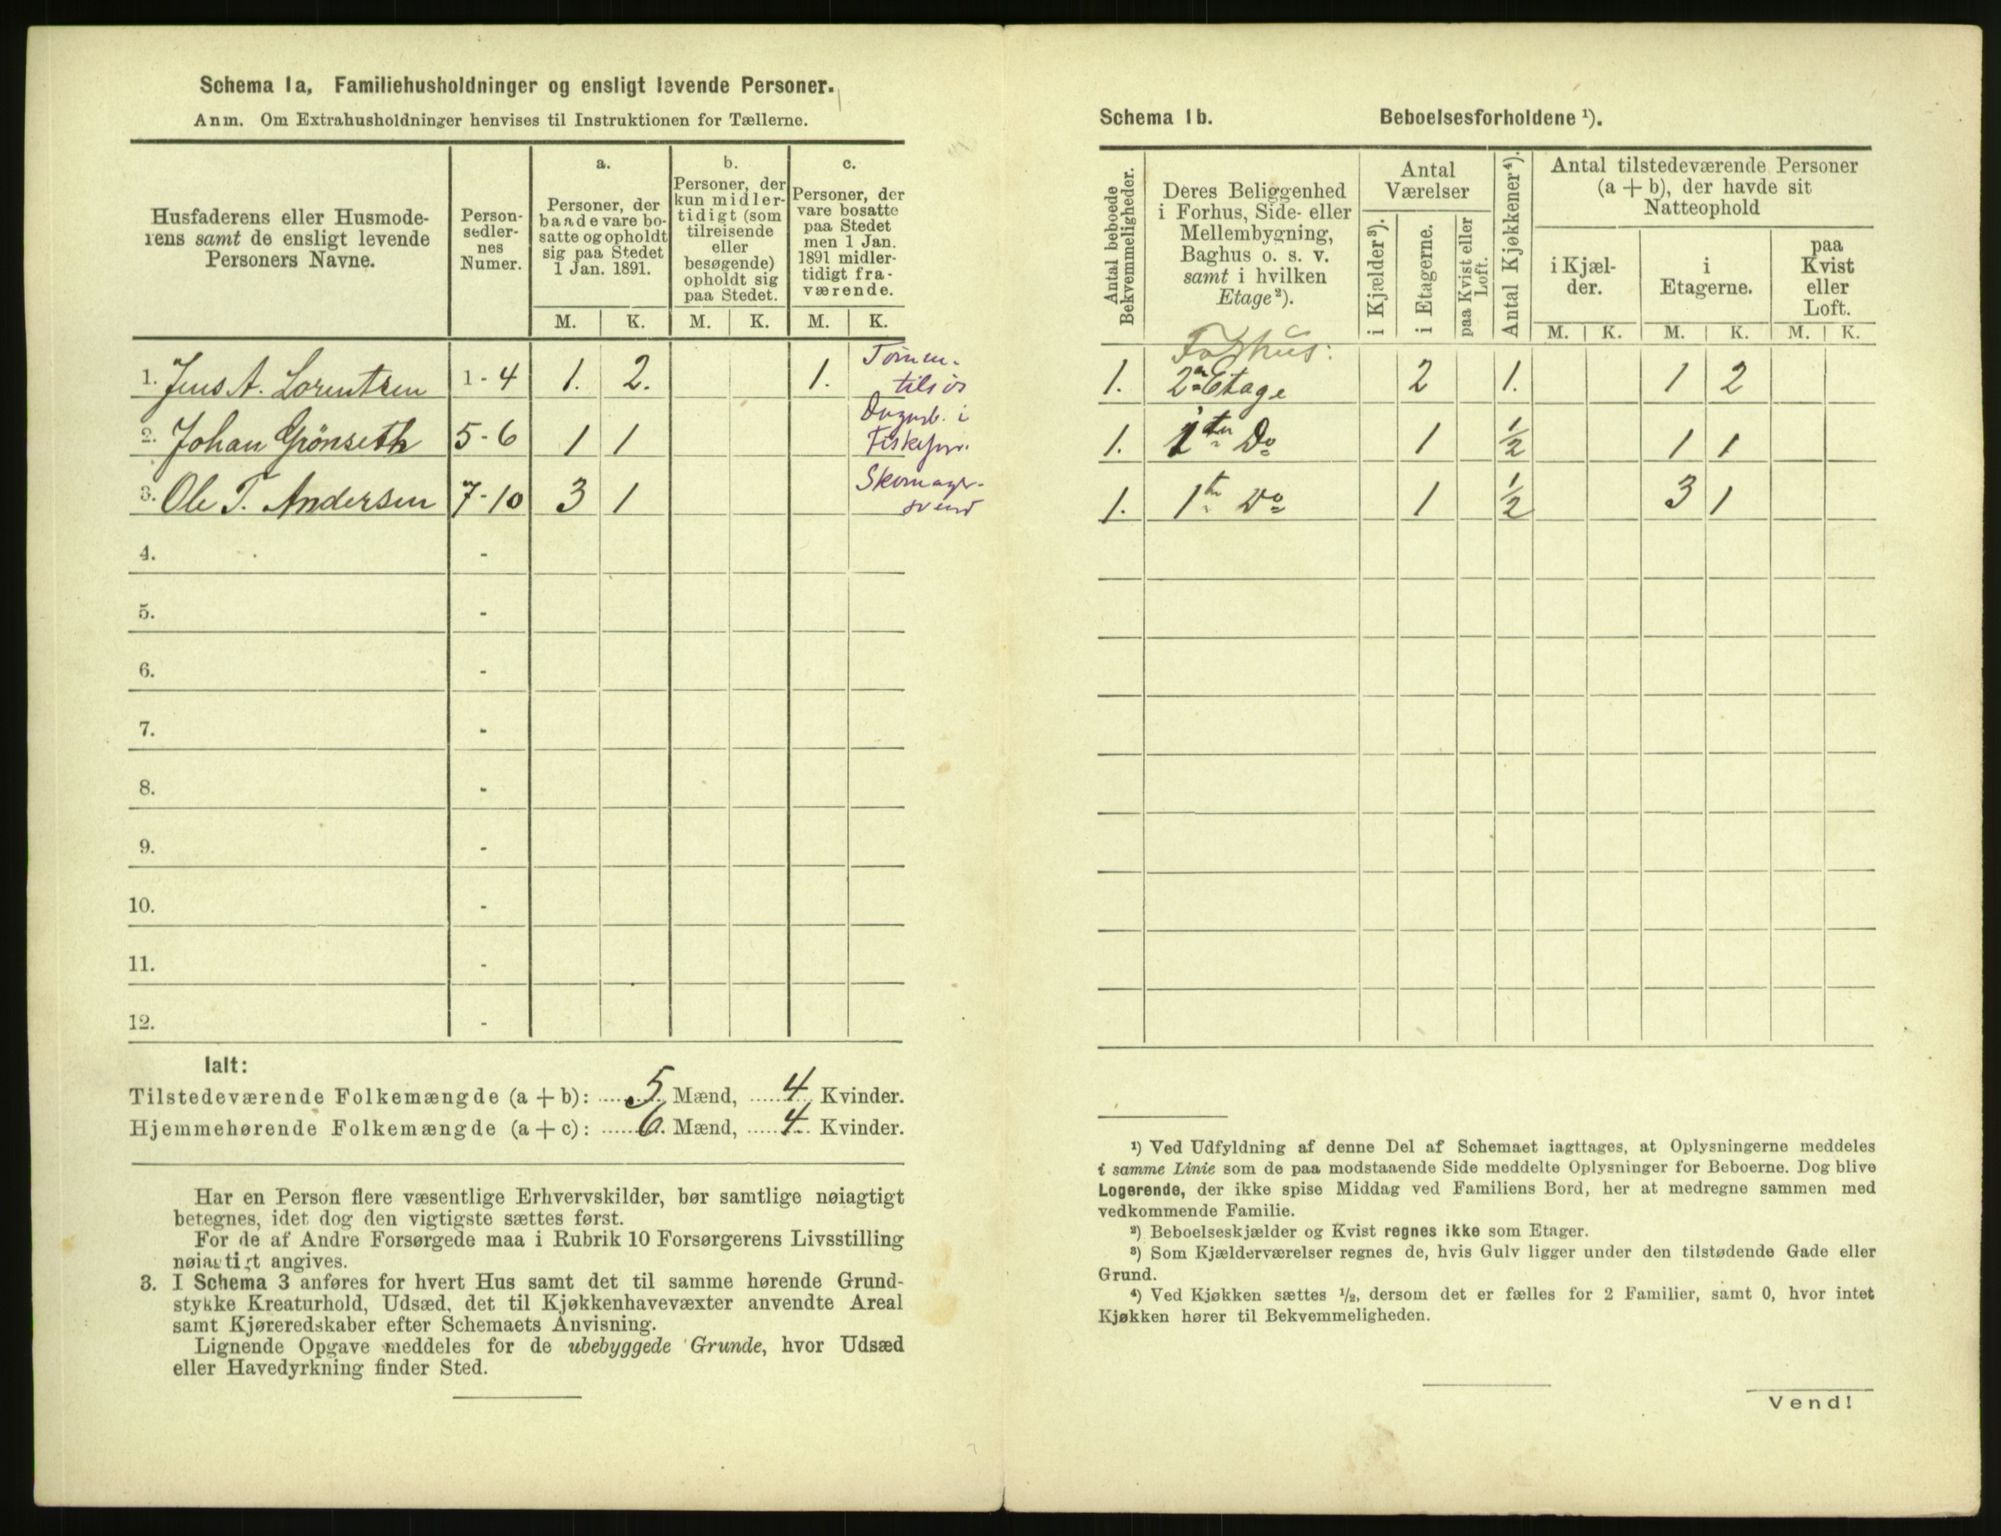 Schema 1a, Familiehusholdninger og ensligt levende Personer.
Anm. Om Extrahusholdninger henvises til Instruktionen for Tællerne.
Husfaderens eller Husmoderens samt de ensligt levende Personers Navne.
Personsedlernes Numer.
a.
Personer, der baade vare bosatte og opholdt sig paa Stedet 1 Jan. 1891.
b.
Personer, der kun midlertidigt (som tilreisende eller besøgende) opholdt sig paa Stedet.
c.
Personer, der vare bosatte paa Stedet men 1 Jan. 1891 midlertidigt fraværende.
M. K. M. K. M. K.
1. Jens A. Lorentzen 1-4 1. 2. 1. Tømm. tilsis
2. Johan Grönseth 5-6 1 1 i Fiskeforr.
3. Ole T. Andersen 7-10 3 1 Skomager- svend
4. -
5. -
6. -
7. -
8. -
9. -
10. -
11. -
12. -
Ialt:
Tilstedeværende Folkemængde (a + b): 5 Mænd, 4 Kvinder.
Hjemmehørende Folkemængde (a + c): 6. Mænd, 4 Kvinder.
Har en Person flere væsentlige Erhvervskilder, bør samtlige nøiagtigt
betegnes, idet dog den vigtigste sættes først.
For de af Andre Forsørgede maa i Rubrik 10 Forsørgerens Livsstilling
nøiagtigt angives.
3. I Schema 3 anføres for hvert Hus samt det til samme hørende Grund-
stykke Kreaturhold, Udsæd, det til Kjøkkenhavevæxter anvendte Areal
samt Kjøreredskaber efter Schemaets Anvisning.
Lignende Opgave meddeles for de ubebyggede Grunde, hvor Udsæd
eller Havedyrkning finder Sted.
Schema 1b. Beboelsesforholdene ¹).
Antal beboede Bekvemmeligheder.
Deres Beliggenhed i Forhus, Side- eller Mellembygning, Baghus o. s. v. samt i hvilken Etage²).
Antal Værelser
i Kjælder³).
i Etagerne.
paa Kvist eller Loft.
Antal Kjøkkener⁴).
Antal tilstedeværende Personer (a + b), der havde sit Natteophold
i Kjælder.
i Etagerne.
paa Kvist eller Loft.
M. K. M. K. M. K.
Forhus:
1. 2den Etage 2 1. 1 2
1. 1ste Do 1 ½ 1 1
1. 1ste Do 1 ½ 3 1
¹) Ved Udfyldning af denne Del af Schemaet iagttages, at Oplysningerne meddeles
i samme Linie som de paa modstaaende Side meddelte Oplysninger for Beboerne. Dog blive
Logerende, der ikke spise Middag ved Familiens Bord, her at medregne sammen med
vedkommende Familie.
²) Beboelseskjælder og Kvist regnes ikke som Etager.
³) Som Kjælderværelser regnes de, hvis Gulv ligger under den tilstødende Gade eller
Grund.
⁴) Ved Kjøkken sættes ½, dersom det er fælles for 2 Familier, samt 0, hvor intet
Kjøkken hører til Bekvemmeligheden.
Vend!